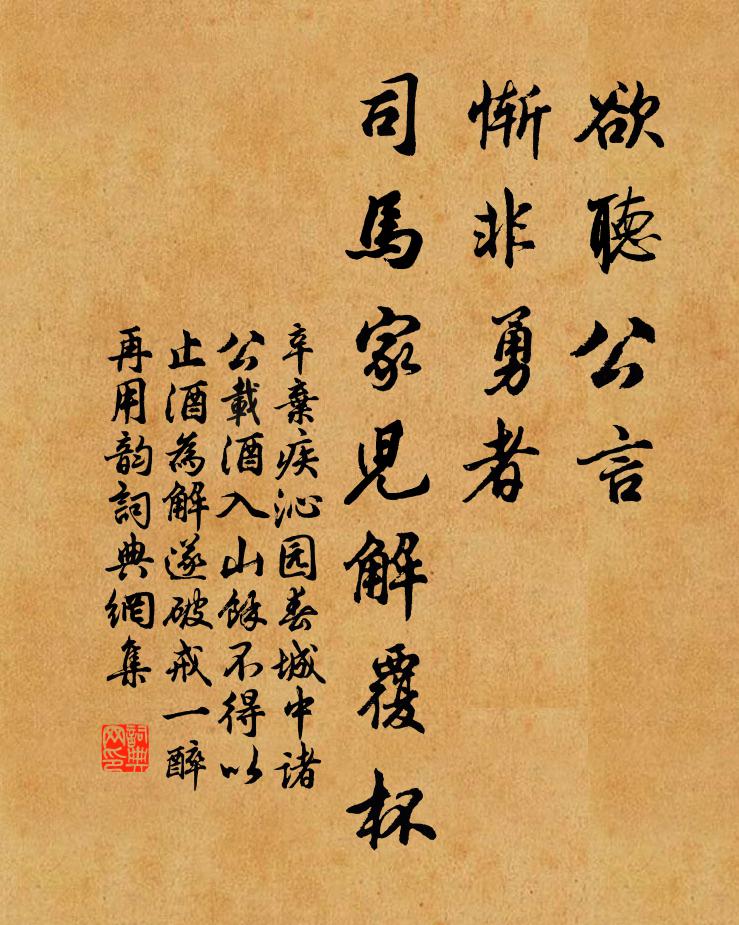 欲聽公言
慚非勇者
司馬家兒解覆杯
辛棄疾沁园春城中諸
公載酒入山餘不得以
止酒為解遂破戒一醉
再用韵詞典網集
詞典
网印